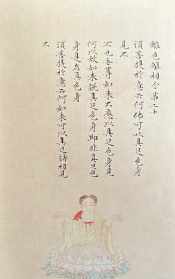 離色離相分第二十
須菩提於意云何佛可以具足色身
見不
不也世尊如來不應以具足色身見
何以故如來說具足色身即非具足色
身是名具足色身
須菩提於意云何如來可以具足諸相見
不